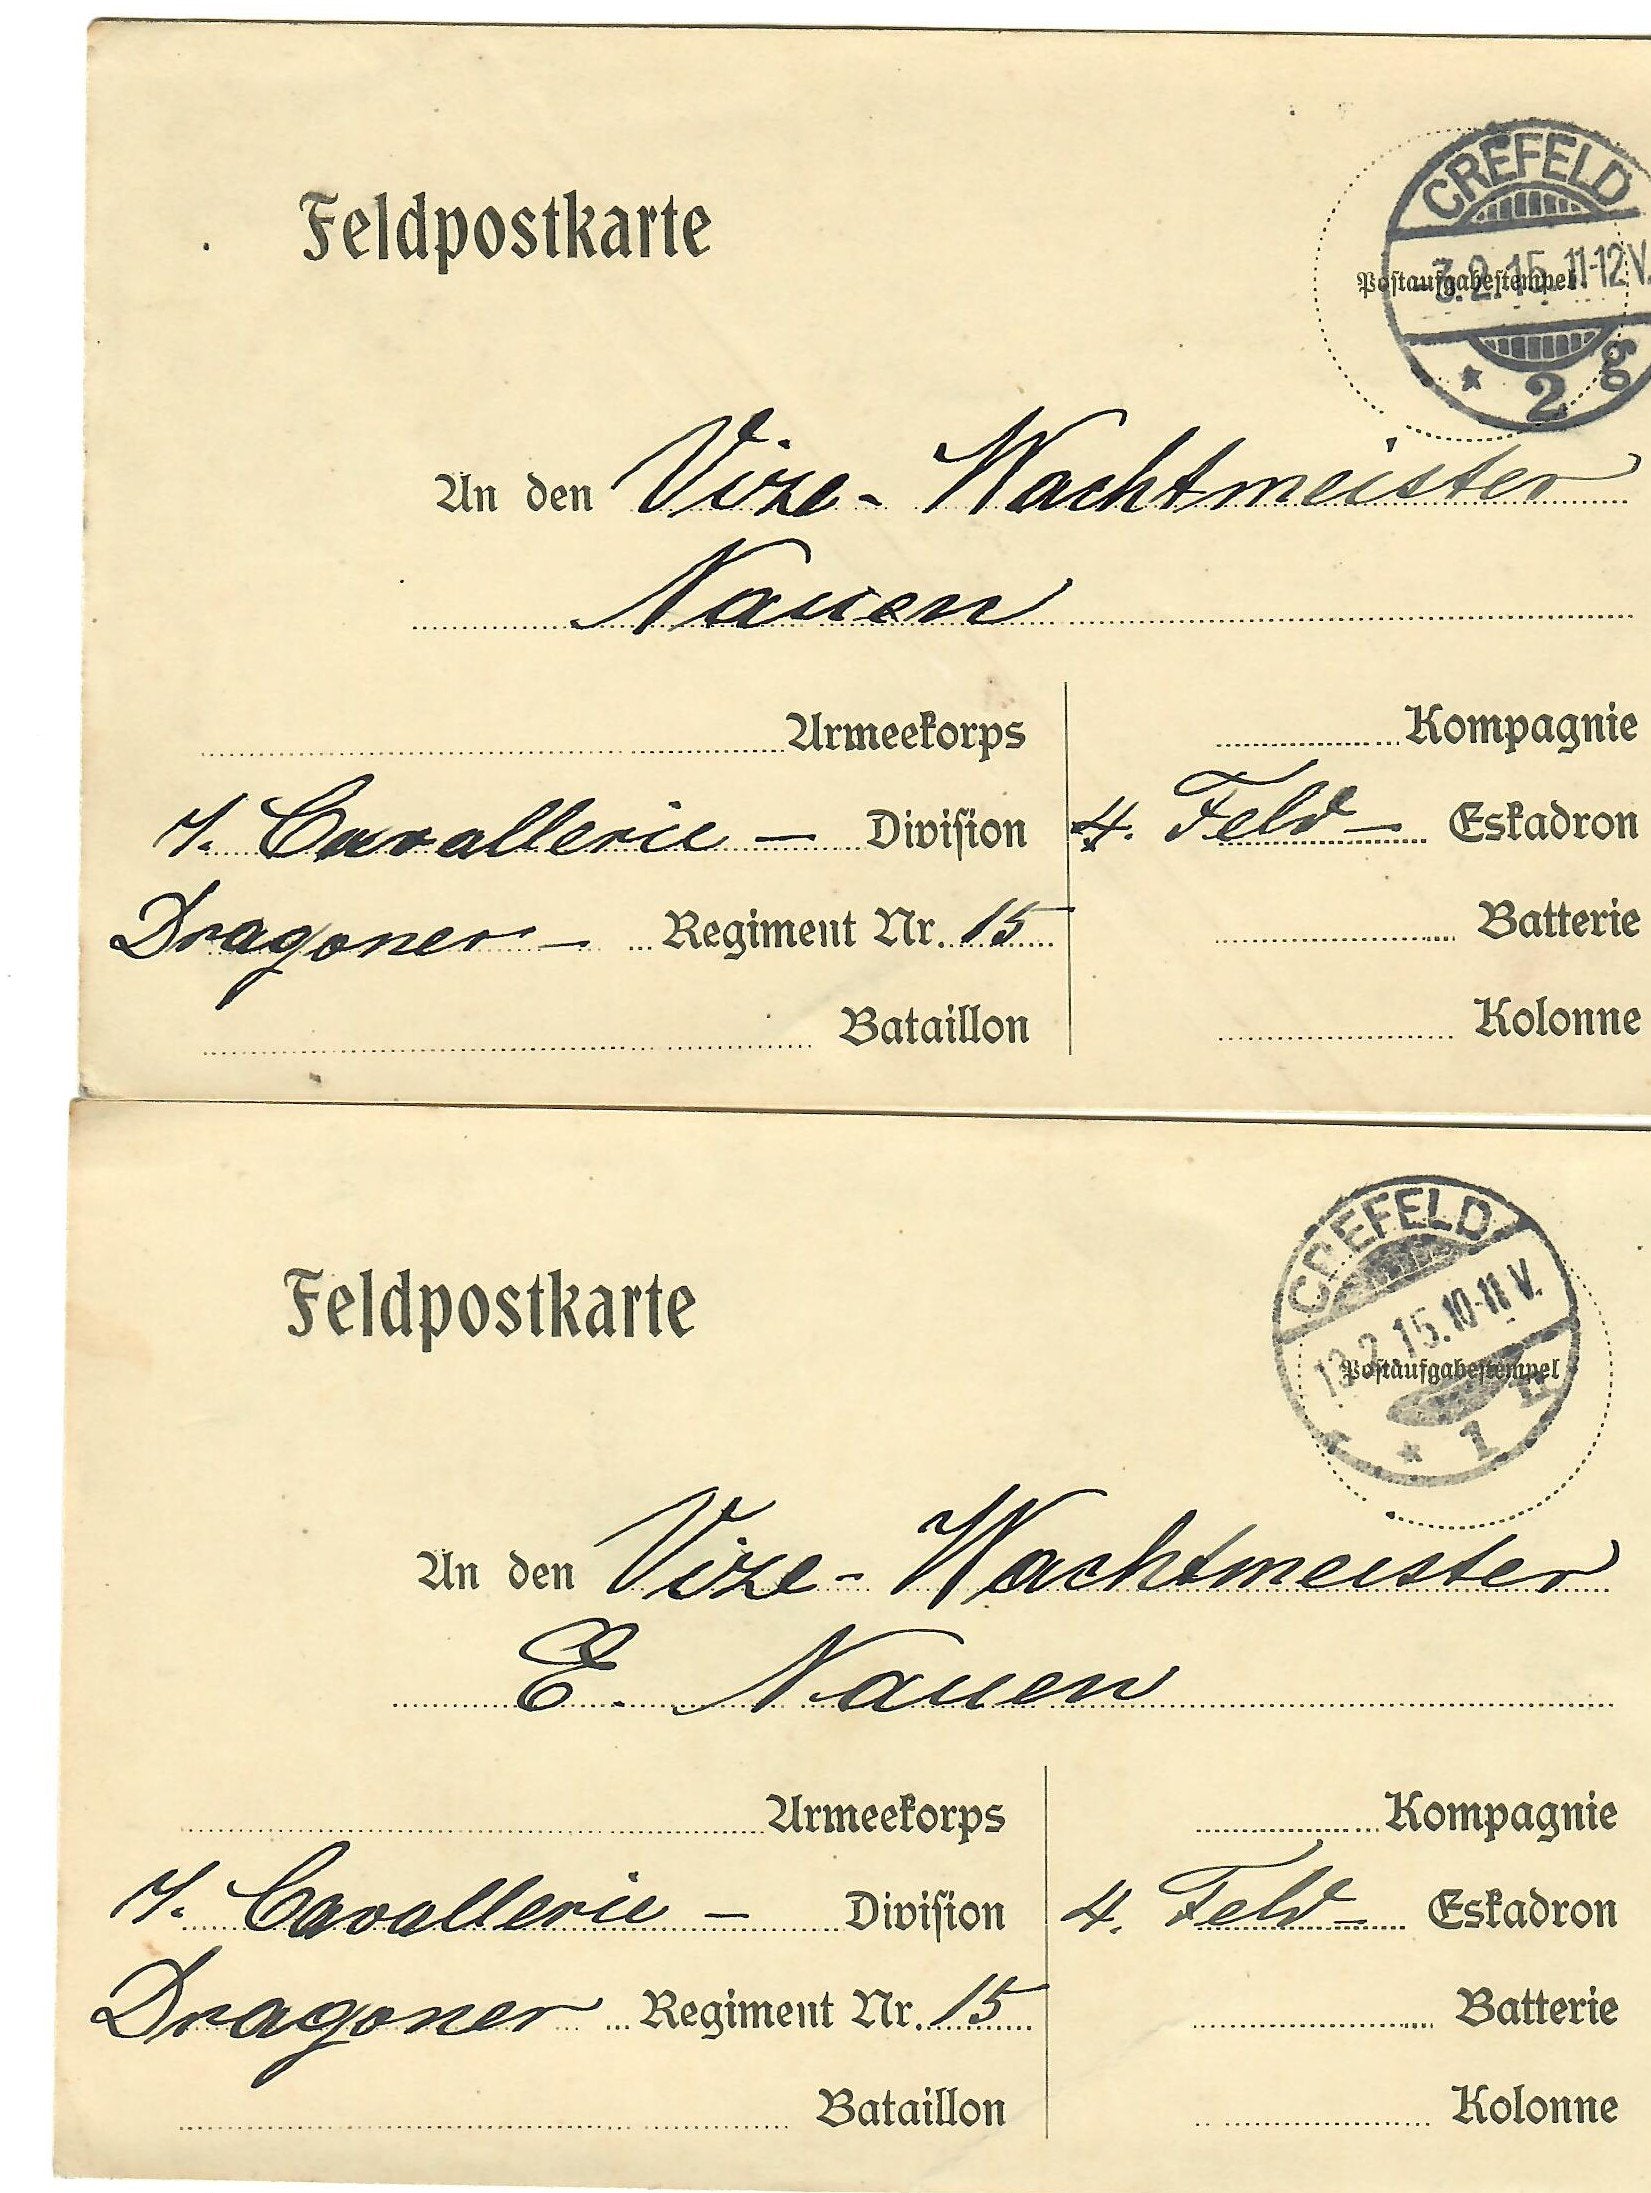 Feldpostkarte
CREFELD
3.2.15.11-12V.
Postaufgabestempel
* 2 g
An den Vize-Wachtmeister
Nauen
Armeekorps
Kompagnie
7. Cavallerie - Division
4. Feld- Eskadron
Dragoner- Regiment Nr. 15
Batterie
Bataillon
Kolonne
Feldpostkarte
CREFELD
13.2.15.10-11V.
Postaufgabestempel
* 1
An den Vize-Wachtmeister
E. Nauen
Armeekorps
Kompagnie
7. Cavallerie - Division
4. Feld- Eskadron
Dragoner Regiment Nr. 15
Batterie
Bataillon
Kolonne